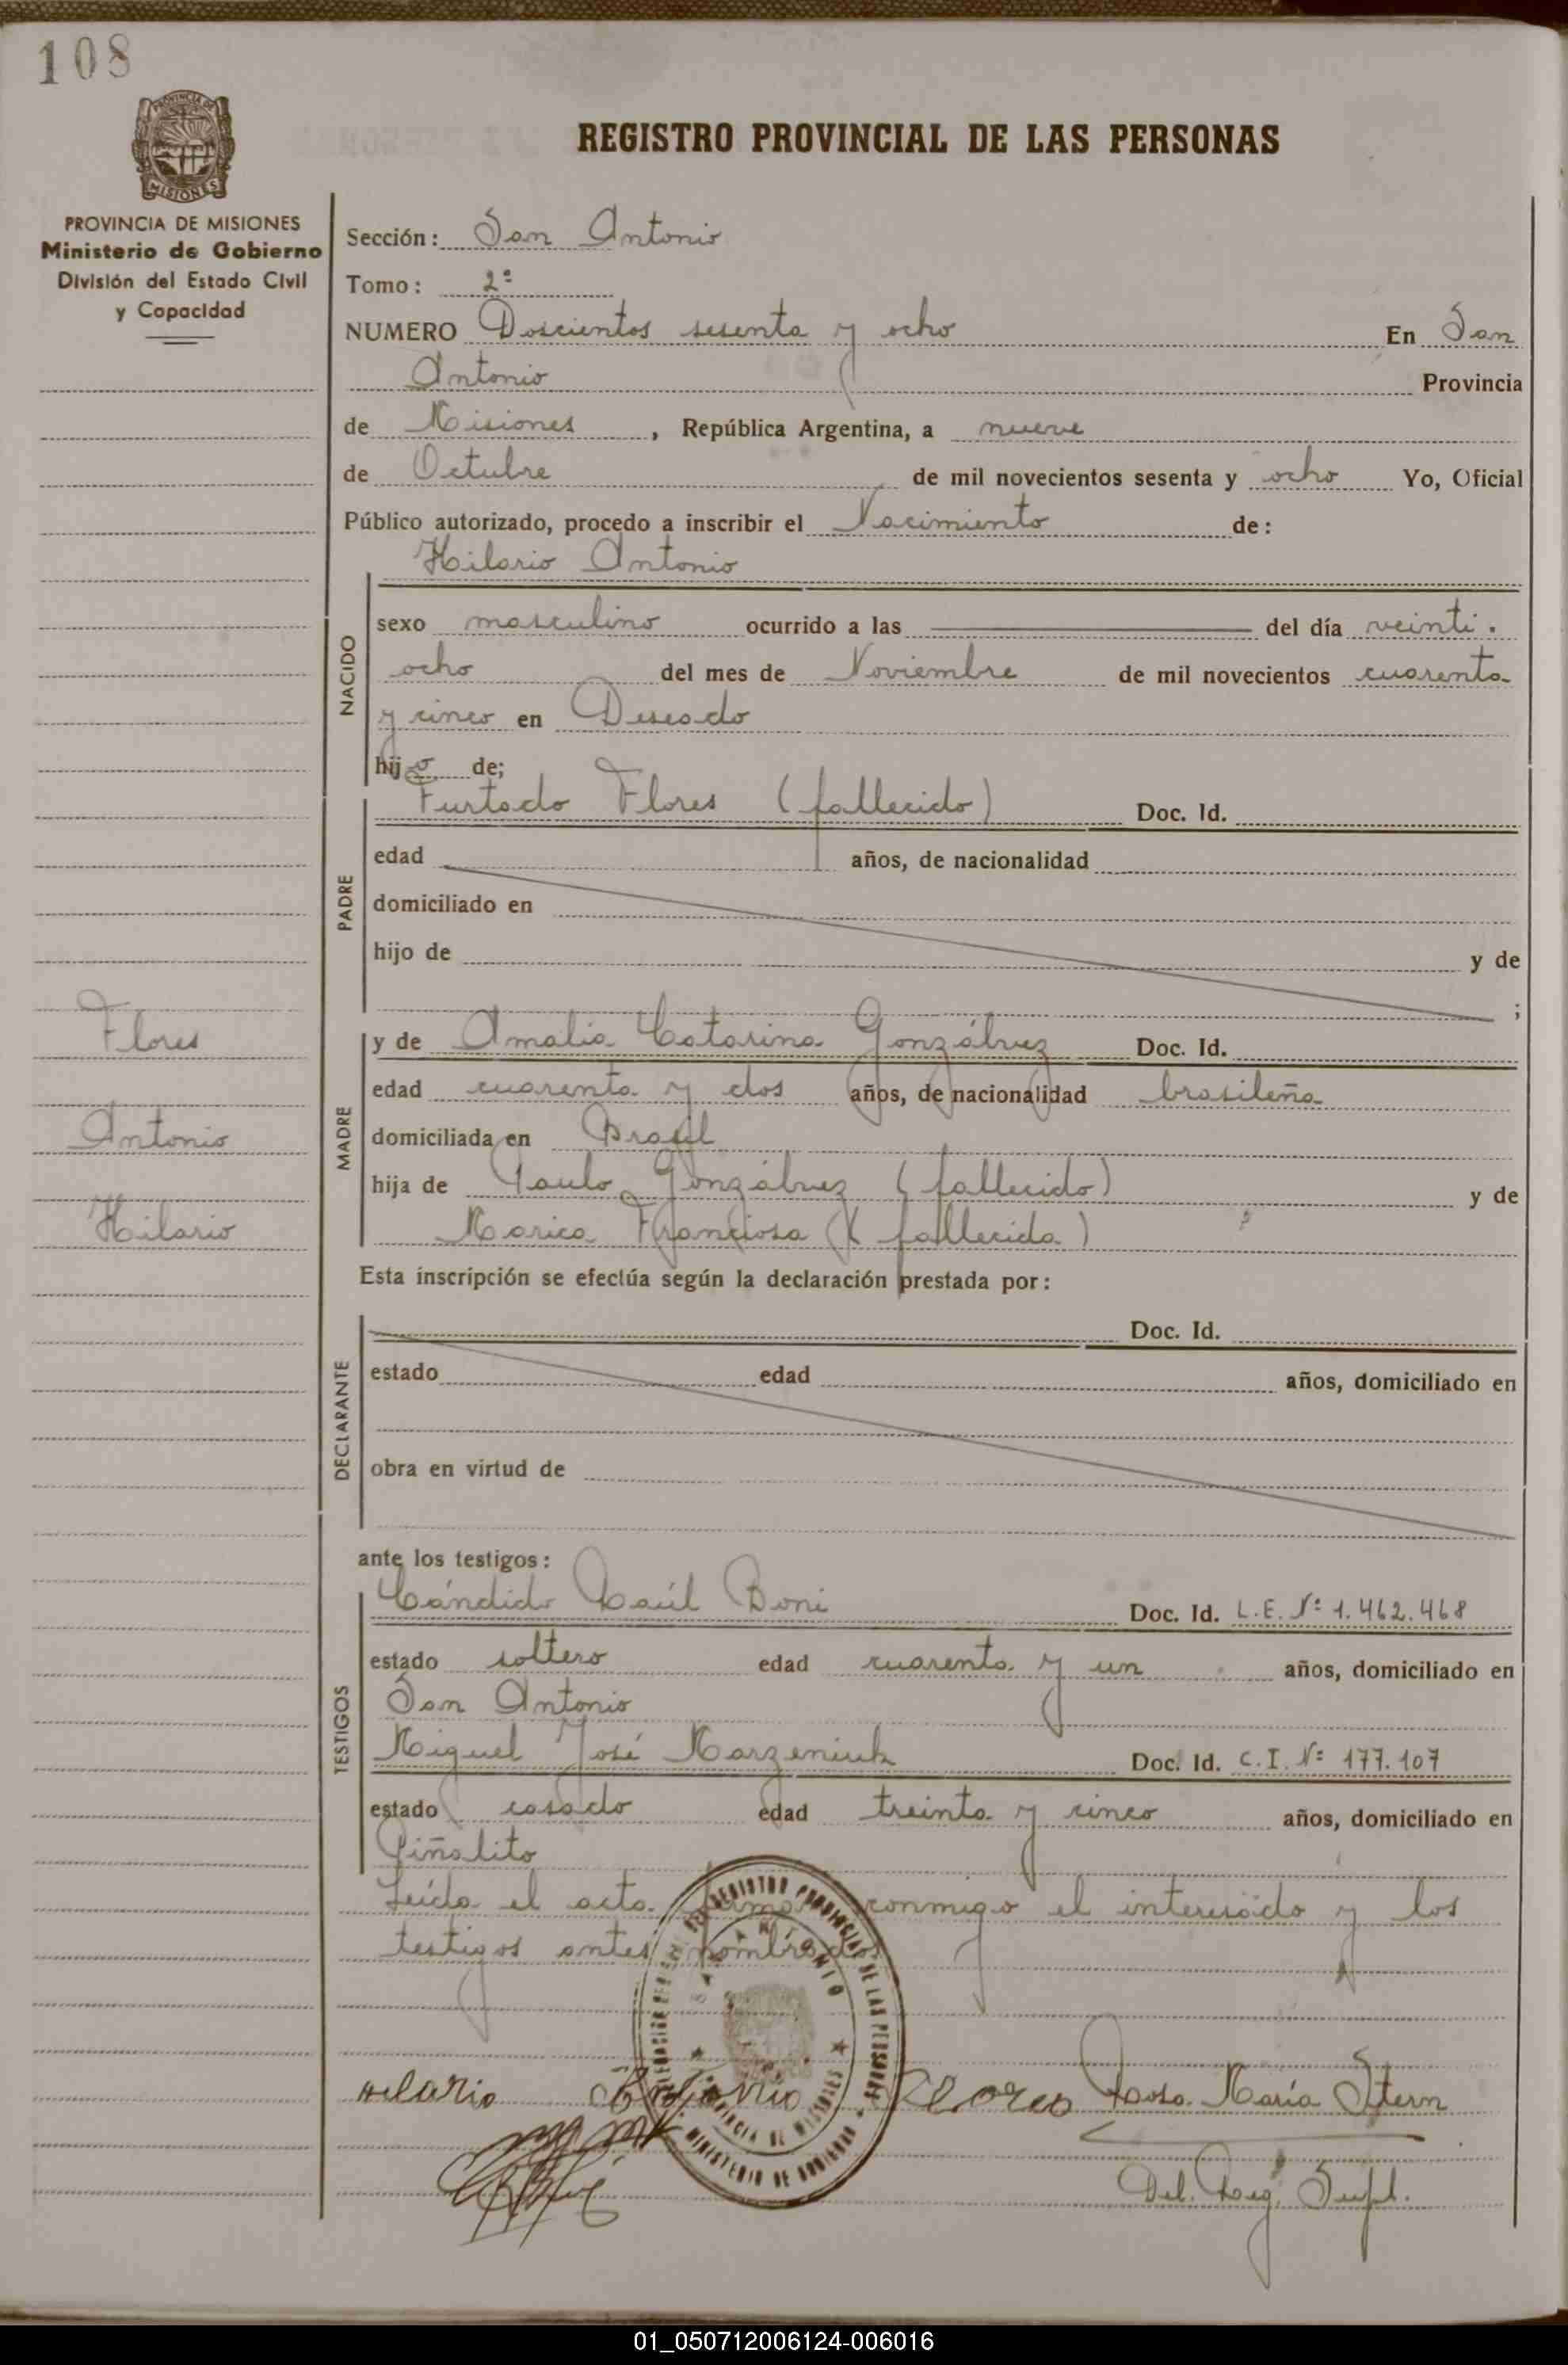 108
PROVINCIA DE
MISIONES
REGISTRO PROVINCIAL DE LAS PERSONAS
PROVINCIA DE MISIONES
Ministerio de Gobierno
División del Estado Civil
y Capacidad
Sección: San Antonio
Tomo: 2º
NUMERO Doscientos sesenta y ocho En San
Antonio Provincia
de Misiones, República Argentina, a nueve
de Octubre de mil novecientos sesenta y ocho Yo, Oficial
Público autorizado, procedo a inscribir el Nacimiento de:
Hilario Antonio
NACIDO
sexo masculino ocurrido a las del día veinti.
ocho del mes de Noviembre de mil novecientos cuarenta
y cinco en Deseado
hijo de;
PADRE
Furtado Flores (fallecido) Doc. Id.
edad años, de nacionalidad
domiciliado en
hijo de y de
;
Flores
Antonio
Hilario
MADRE
y de Amalia Catarina Gonzálvez Doc. Id.
edad cuarenta y dos años, de nacionalidad brasileña
domiciliada en Brasil
hija de Paulo Gonzálvez (fallecido) y de
Marica Franciosa (fallecida)
Esta inscripción se efectúa según la declaración prestada por:
DECLARANTE
Doc. Id.
estado edad años, domiciliado en
obra en virtud de
ante los testigos:
TESTIGOS
Cándido Raúl Boni Doc. Id. L.E. Nº 1.462.468
estado soltero edad cuarenta y un años, domiciliado en
San Antonio
Miguel José Marzeniuk Doc. Id. C.I. Nº 177.107
estado casado edad treinta y cinco años, domiciliado en
Piñalito
Leída el acta firma conmigo el interesado y los
testigos antes nombrados
Hilario Antonio Flores Rosa María Stern
Del. Reg. Supl.
REGISTRO PROVINCIAL DE LAS PERSONAS
SAN ANTONIO
PROVINCIA DE MISIONES
MINISTERIO DE GOBIERNO
01_050712006124-006016